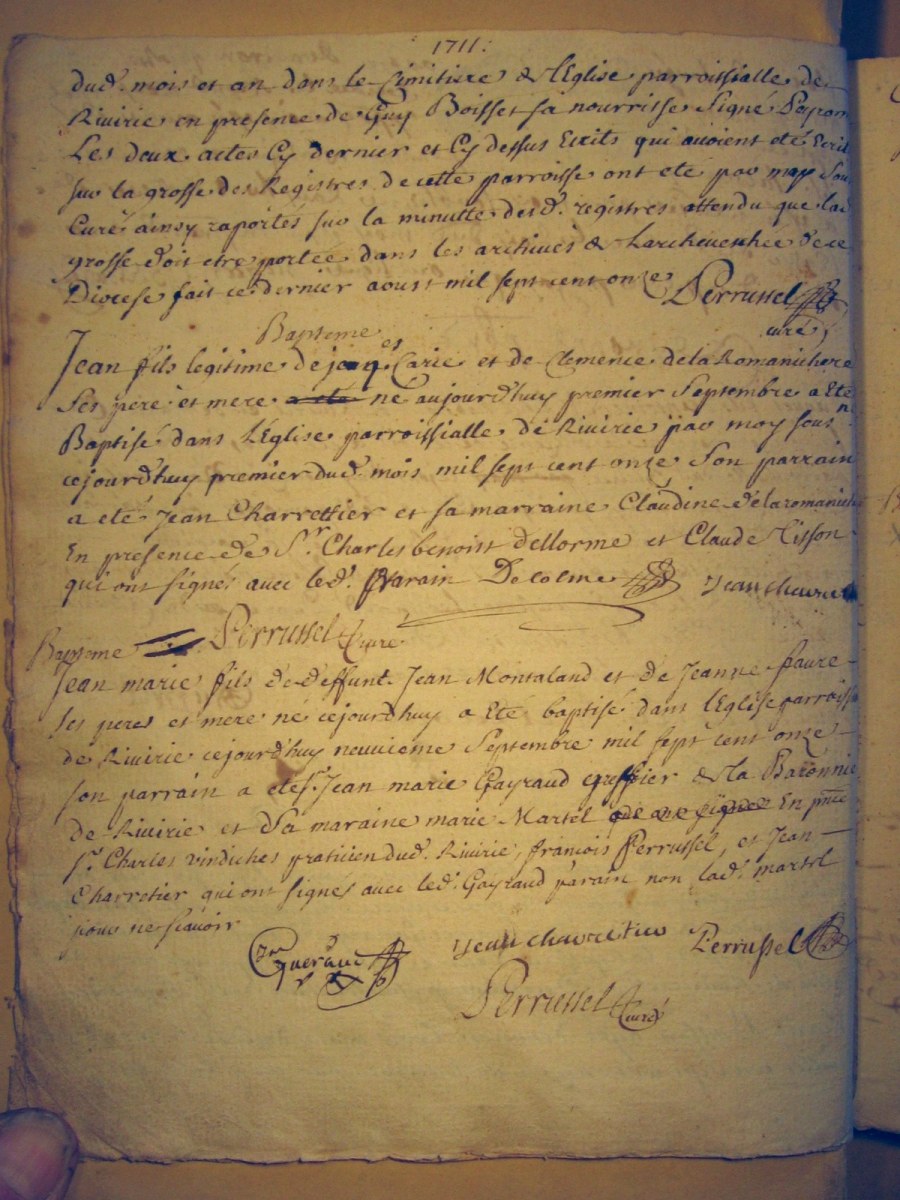 1711.
dud. mois et an dans le Cimitiere de L'Eglise parroissialle de
Rivirie en presence de Guy Boisset sa nourrisse Signé Peyron
Les deux actes Cy dernier et Cy dessus Ecrits qui avoient eté Ecrit
sur la grosse des Registres de cette parroisse ont eté par moy Sou
Curé ainsy raportés sur la minutte desd. registres attendu que lad
grosse doit etre portée dans les archives de Larcheveschee de ce
Diocese fait ce dernier aoust mil sept cent onze Perrussel
curé
Bapteme
Jean fils legitime de jacques Carie et de Clemence de la Romanichere
Ses pere et mere né aujourdhuy premier Septembre a Eté
Baptisé dans L'Eglise parroissialle de Rivirie par moy sousn
cejourdhuy premier dud. mois mil sept cent onze Son parrain
a eté Jean Charrettier et sa marraine Claudine de la romanich
En presence de Sr. Charles benoist dellorme et Claude Tisson
qui ont signés avec led. parain Delolme Jean Charret
Perrussel Curé
Bapteme
Jean marie fils de deffunt Jean Montaland et de Jeanne faure
ses peres et mere né cejourdhuy a Eté baptisé dans L'Eglise parroiss
de Rivirie cejourdhuy neuvieme Septembre mil sept cent onze
son parrain a eté sr. Jean marie Gayraud greffier de la Baronnie
de Rivirie et Sa maraine marie Martel En pnce
sr. Charles vindiches praticien dud. Rivirie, francois Perrussel, et Jean
Charretier qui ont signés avec led. Gayraud parain non lad. martel
pour ne sçavoir
Jean charetier Perrussel
Perrussel Curé